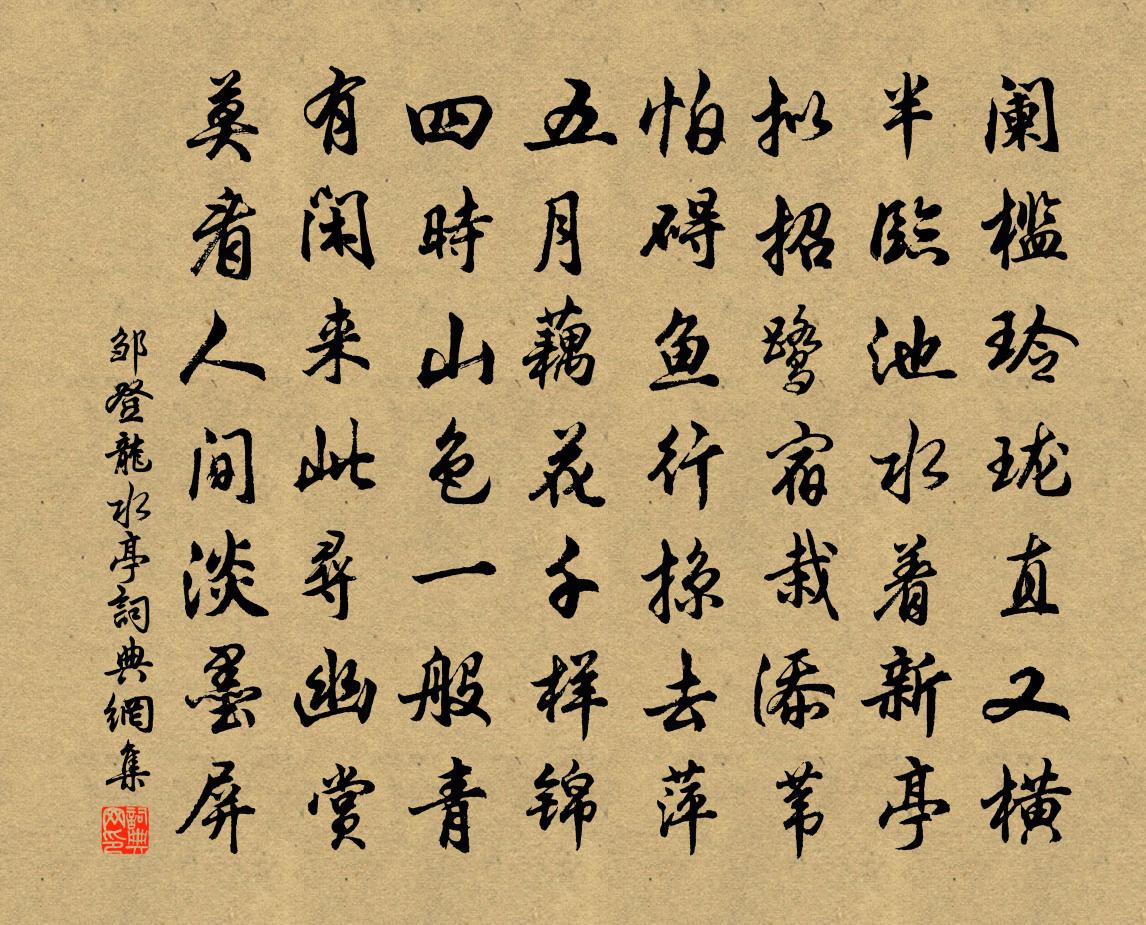 阑槛玲珑直又横
半临池水着新亭
拟招鹭宿栽添苇
怕碍鱼行掠去萍
五月藕花千样锦
四時山色一般青
有闲来此尋幽赏
莫看人间淡墨屏
邹登龍水亭詞典網集
詞典网印